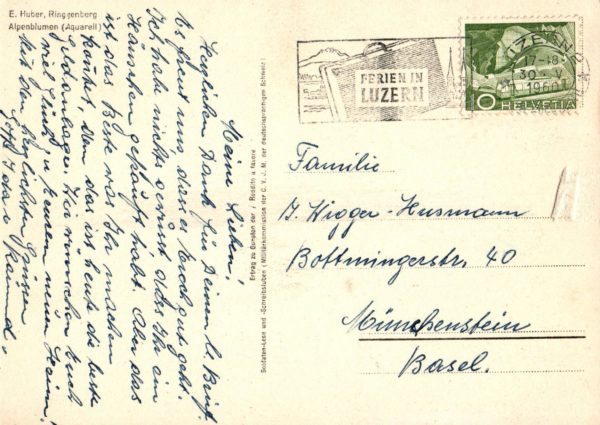 E. Huber, Ringgenberg
Alpenblumen (Aquarell)
Meine Lieben,
Herzlichen Dank für Deinen lb. Brief.
Es freut uns, dass es Euch gut geht.
Ich habe nichts gewusst dass Ihr ein
Häuschen gekauft habt. Aber das
ist das Beste was Ihr machen
könnt, denn das ist heute die beste
Geldanlage. Wir wünschen Euch
viel Glück in Eurem neuen Heim.
Mit den herzlichsten Grüssen
Ertrag zu Gunsten der
Soldaten-Lese und -Schreibstuben (Militärkommission der C.V.J.M. der deutschsprachigen Schweiz)
FERIEN IN
LUZERN
LUZERN
17-18
30. V.
1960
10 HELVETIA
Familie
J. Wigger-Husmann
Bottmingerstr. 40
Münchenstein
Basel.